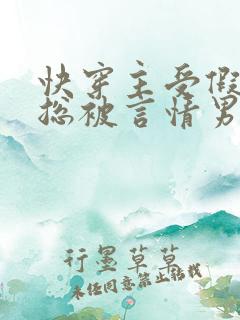 快穿主受假
总被言情男
行墨草草
未经同意禁止转载